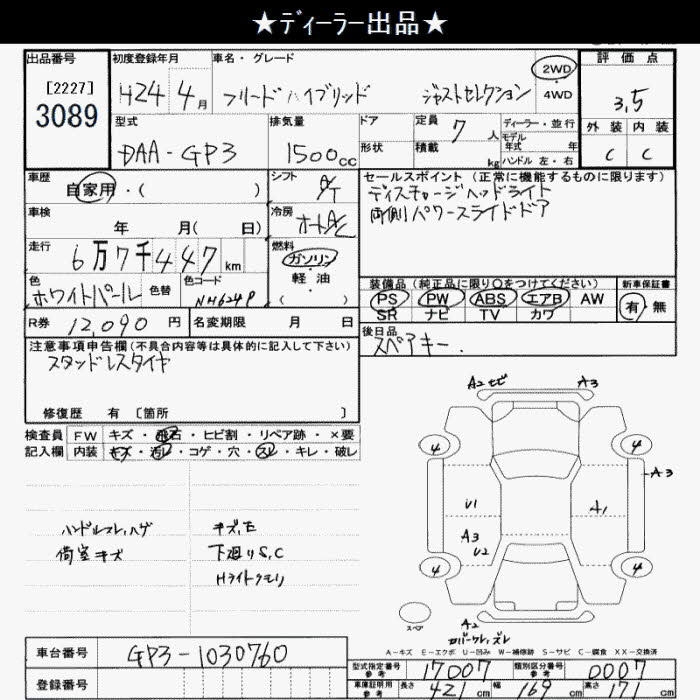 ★ディーラー出品★
出品番号 初度登録年月 車名・グレード 評価点
[2227] 3089 H24 4月 フリードハイブリッド ジャストセレクション 2WD・4WD 3.5
型式 排気量 ドア 定員 7人 ディーラー・並行 外装 内装
モデル年式 年
DAA-GP3 1500cc 形状 積載 kg ハンドル 左・右 C C
車歴 シフト セールスポイント (正常に機能するものに限ります)
自家用・( ) A/T ディスチャージヘッドライト
車検 冷房 両側パワースライドドア
年 月( 日) オートA/C
走行 燃料
6万7千447km ガソリン・軽油・( )
色 色替 色コード 装備品 (純正品に限り○をつけてください) 新車保証書
ホワイトパール NH624P PS PW ABS エアB AW 有・無
SR ナビ TV カワ
R券 12,090円 名変期限 月 日 後日品
注意事項申告欄(不具合内容等は具体的に記入して下さい) スペアキー.
スタッドレスタイヤ
修復歴 有 [箇所 ]
検査員 FW キズ・飛石・ヒビ割・リペア跡・×要
記入欄 内装 キズ・汚レ・コゲ・穴・スレ・キレ・破レ
A2 A3
4 4
A3
U1 A1
A3
U2
4 4
A2
スペア
ハンドルスレ,ハゲ キズ,E
荷室キズ 下廻りS,C
Hライトクモリ
A-キズ E-エクボ U-凹み W-補修跡 S-サビ C-腐食 XX-交換済
車台番号 GP3-1030760
登録番号
型式指定番号 参考 17007 類別区分番号 参考 0007
車庫証明用 参考 長さ 421cm 幅 169cm 高さ 171cm